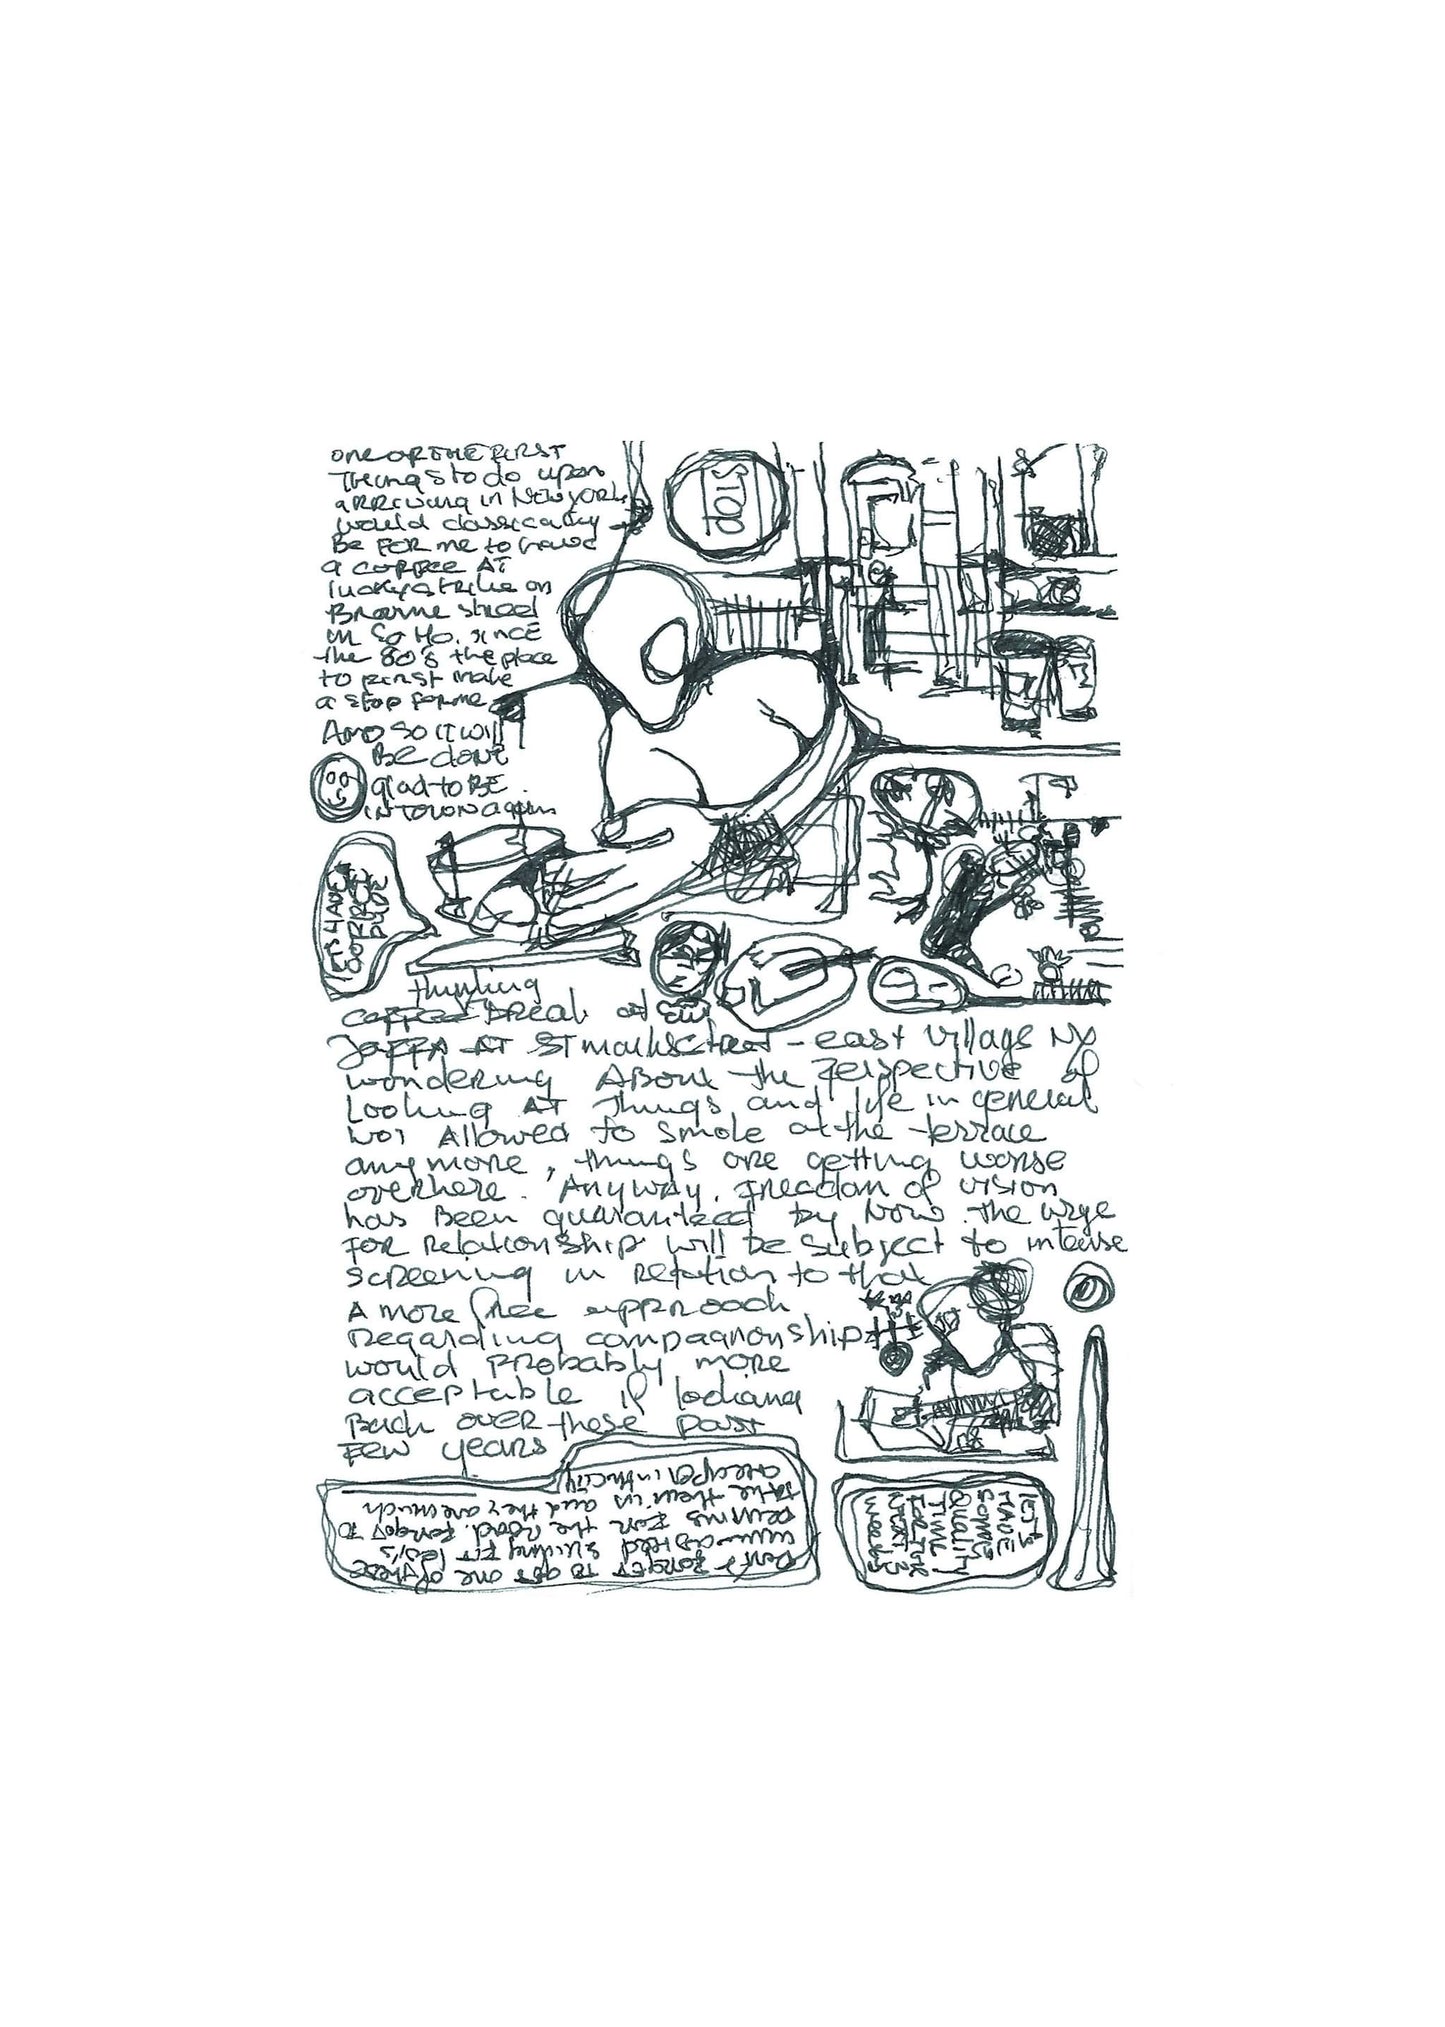 ONE OF THE FIRST
Things to do upon
arriving in New York
would classically
Be FOR me to have
a coffee AT
lucky strike on
Broome street
in SoHo. SINCE
the 80's the place
to first make
a stop for me
AND so it will
Be done
glad to BE
in town again
LETS HAVE A
COFFEE
thinking
coffee break at
JAFFA AT ST marks street - east village NY
wondering About the perspective of
Looking AT things and life in general
NOT Allowed to smoke at the terrace
anymore, things are getting worse
overhere. Anyway, freedom of vision
has Been guaranteed by Now. the urge
FOR Relationship will be subject to intense
screening in relation to that
A more free approach
regarding compagnonship
would probably more
acceptable if looking
Back over these past
FEW years
Don't FORGET TO get one of these
sliding fit
for the road. forgot TO
take them in and they are much
in the city
LETS
MAKE
Quality
TIME
FOR
NEXT
weeks